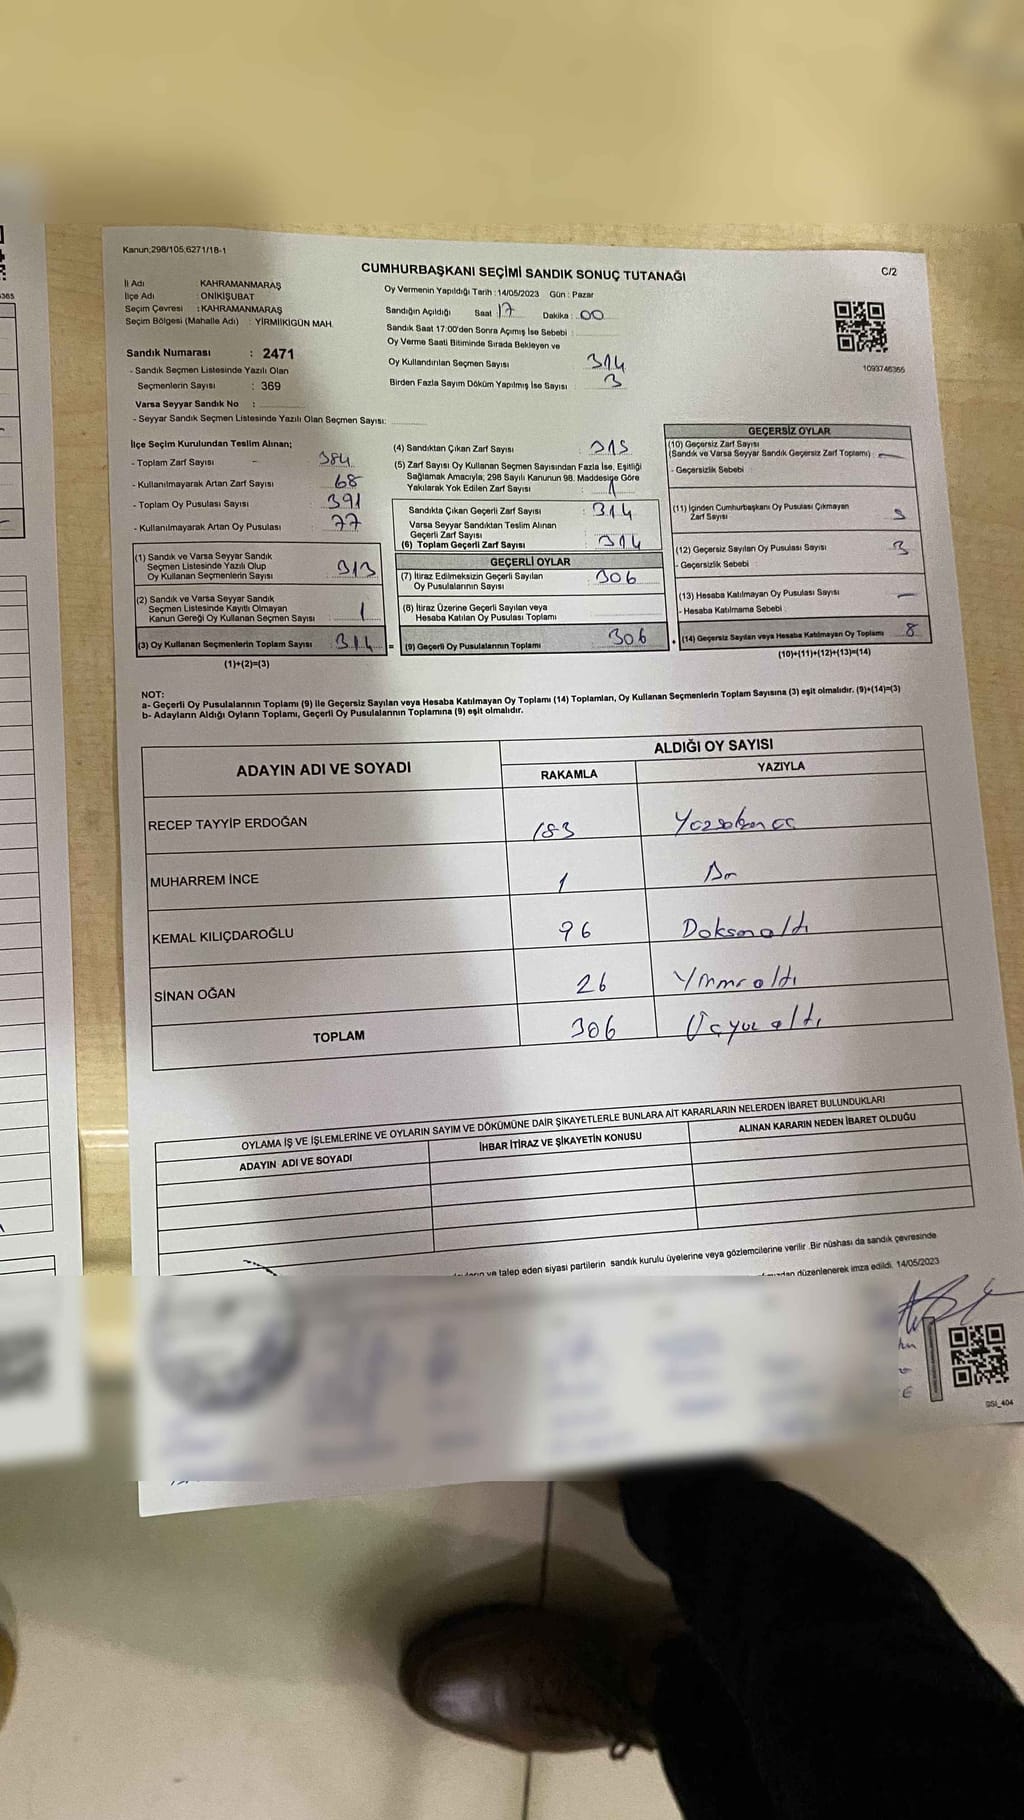 Kanun:298/105;6271/18-1
C/2
CUMHURBAŞKANI SEÇİMİ SANDIK SONUÇ TUTANAĞI
İl Adı : KAHRAMANMARAŞ
İlçe Adı : ONİKİŞUBAT
Seçim Çevresi : KAHRAMANMARAŞ
Seçim Bölgesi (Mahalle Adı) : YİRMİİKİGÜN MAH.
Sandık Numarası : 2471
- Sandık Seçmen Listesinde Yazılı Olan
Seçmenlerin Sayısı : 369
Varsa Seyyar Sandık No :
- Seyyar Sandık Seçmen Listesinde Yazılı Olan Seçmen Sayısı:
Oy Vermenin Yapıldığı Tarih : 14/05/2023 Gün : Pazar
Sandığın Açıldığı Saat 17 Dakika : 00
Sandık Saat 17:00'den Sonra Açımış İse Sebebi :
Oy Verme Saati Bitiminde Sırada Bekleyen ve
Oy Kullandırılan Seçmen Sayısı 314
Birden Fazla Sayım Döküm Yapılmış İse Sayısı 3
1093746365
İlçe Seçim Kurulundan Teslim Alınan;
- Toplam Zarf Sayısı 384
- Kullanılmayarak Artan Zarf Sayısı 68
- Toplam Oy Pusulası Sayısı 391
- Kullanılmayarak Artan Oy Pusulası 77
(1) Sandık ve Varsa Seyyar Sandık
Seçmen Listesinde Yazılı Olup
Oy Kullanan Seçmenlerin Sayısı 313
(2) Sandık ve Varsa Seyyar Sandık
Seçmen Listesinde Kayıtlı Olmayan
Kanun Gereği Oy Kullanan Seçmen Sayısı 1
(3) Oy Kullanan Seçmenlerin Toplam Sayısı 314
(1)+(2)=(3)
(4) Sandıktan Çıkan Zarf Sayısı 315
(5) Zarf Sayısı Oy Kullanan Seçmen Sayısından Fazla İse, Eşitliği
Sağlamak Amacıyla; 298 Sayılı Kanunun 98. Maddesige Göre
Yakılarak Yok Edilen Zarf Sayısı 1
Sandıkta Çıkan Geçerli Zarf Sayısı : 314
Varsa Seyyar Sandıktan Teslim Alınan
Geçerli Zarf Sayısı
(6) Toplam Geçerli Zarf Sayısı : 314
GEÇERLİ OYLAR
(7) İtiraz Edilmeksizin Geçerli Sayılan
Oy Pusulalarının Sayısı : 306
(8) İtiraz Üzerine Geçerli Sayılan veya
Hesaba Katılan Oy Pusulası Toplamı
= (9) Geçerli Oy Pusulalarının Toplamı 306
GEÇERSİZ OYLAR
(10) Geçersiz Zarf Sayısı
(Sandık ve Varsa Seyyar Sandık Geçersiz Zarf Toplamı) : —
- Geçersizlik Sebebi :
(11) İçinden Cumhurbaşkanı Oy Pusulası Çıkmayan
Zarf Sayısı 5
(12) Geçersiz Sayılan Oy Pusulası Sayısı : 3
- Geçersizlik Sebebi :
(13) Hesaba Katılmayan Oy Pusulası Sayısı : —
- Hesaba Katılmama Sebebi :
+ (14) Geçersiz Sayılan veya Hesaba Katılmayan Oy Toplamı 8
(10)+(11)+(12)+(13)=(14)
NOT:
a- Geçerli Oy Pusulalarının Toplamı (9) ile Geçersiz Sayılan veya Hesaba Katılmayan Oy Toplamı (14) Toplamları, Oy Kullanan Seçmenlerin Toplam Sayısına (3) eşit olmalıdır. (9)+(14)=(3)
b- Adayların Aldığı Oyların Toplamı, Geçerli Oy Pusulalarının Toplamına (9) eşit olmalıdır.
ADAYIN ADI VE SOYADI
ALDIĞI OY SAYISI
RAKAMLA YAZIYLA
RECEP TAYYİP ERDOĞAN 183
MUHARREM İNCE 1 Bir
KEMAL KILIÇDAROĞLU 96 Doksanaltı
SİNAN OĞAN 26 Yirmialtı
TOPLAM 306 Üçyüzaltı
OYLAMA İŞ VE İŞLEMLERİNE VE OYLARIN SAYIM VE DÖKÜMÜNE DAİR ŞİKAYETLERLE BUNLARA AİT KARARLARIN NELERDEN İBARET BULUNDUKLARI
ADAYIN ADI VE SOYADI İHBAR İTİRAZ VE ŞİKAYETİN KONUSU ALINAN KARARIN NEDEN İBARET OLDUĞU
ve talep eden siyasi partilerin sandık kurulu üyelerine veya gözlemcilerine verilir. Bir nüshası da sandık çevresinde
düzenlenerek imza edildi. 14/05/2023